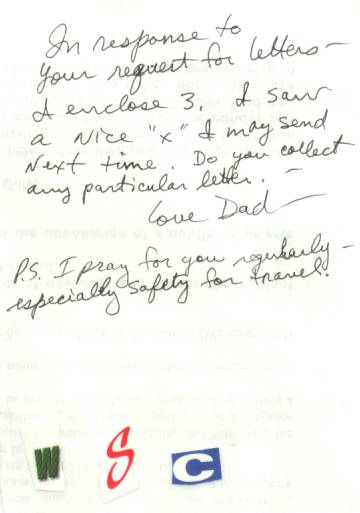 In response to
your request for letters –
I enclose 3. I saw
a nice "x" I may send
next time. Do you collect
any particular letter. –
Love Dad –
P.S. I pray for you regularly –
especially safety for travel.
W S C